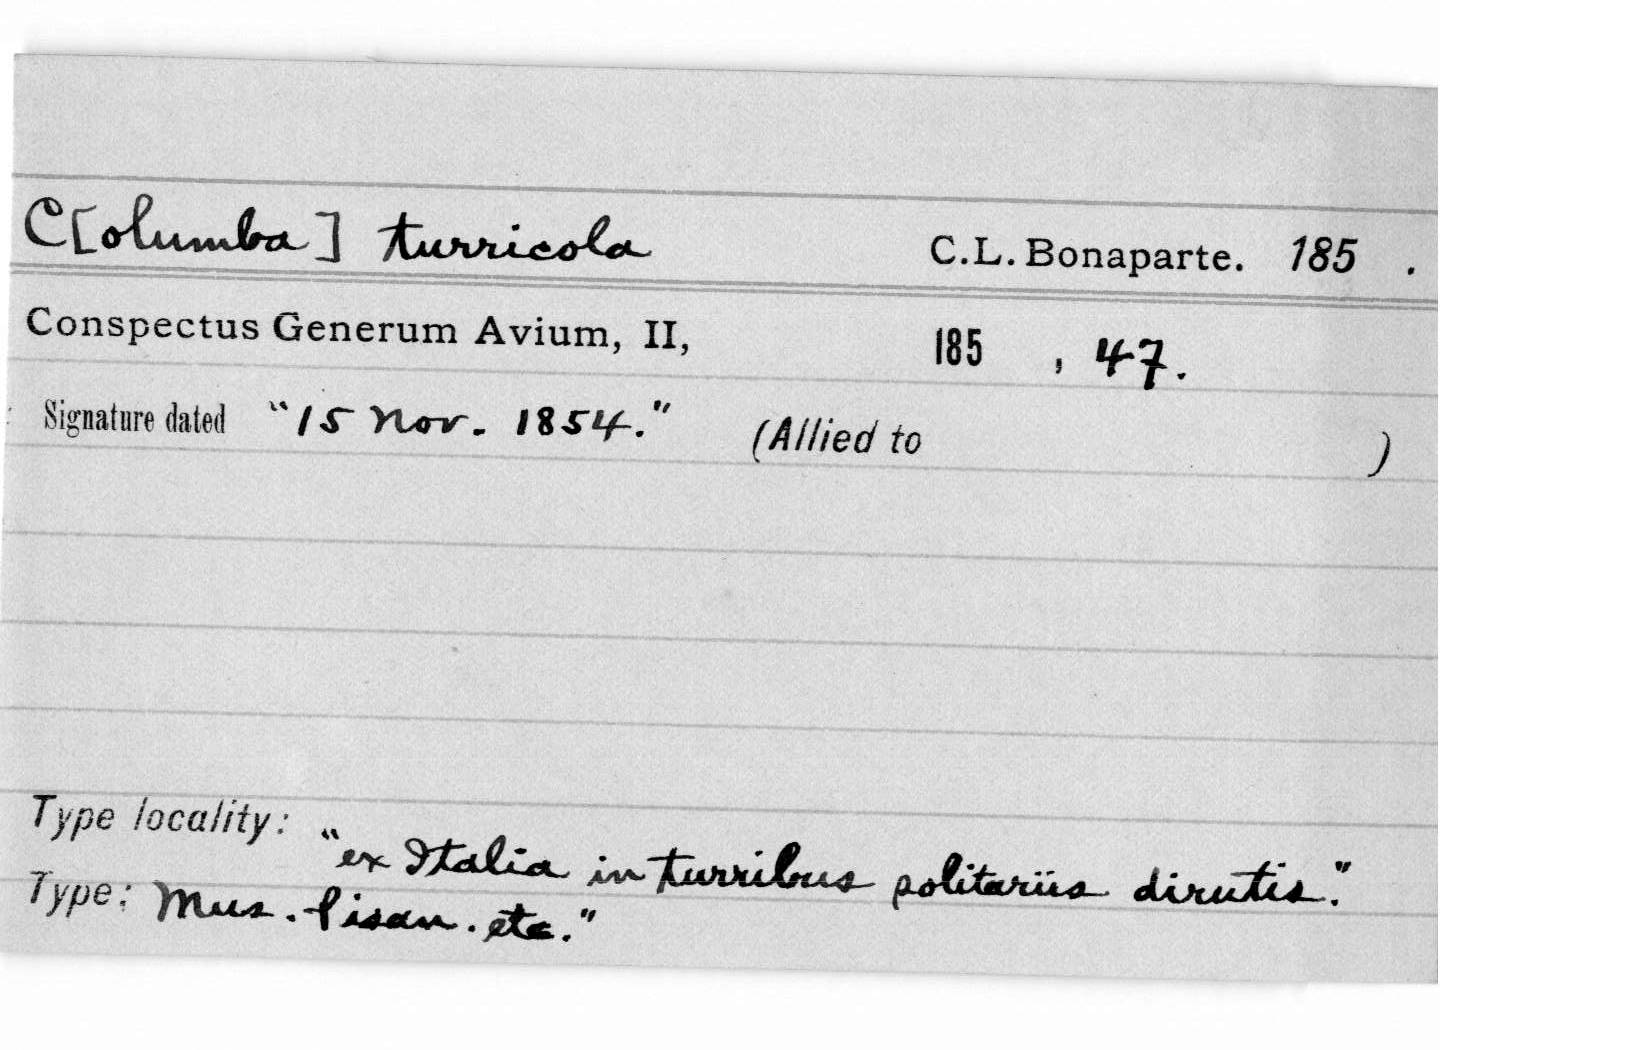 C[olumba] turricola C.L. Bonaparte. 185 .
Conspectus Generum Avium, II, 185 , 47.
Signature dated "15 Nov. 1854." (Allied to )
Type locality: "ex Italia in turribus solitariis dirutis."
Type: Mus. Pisan. etc."